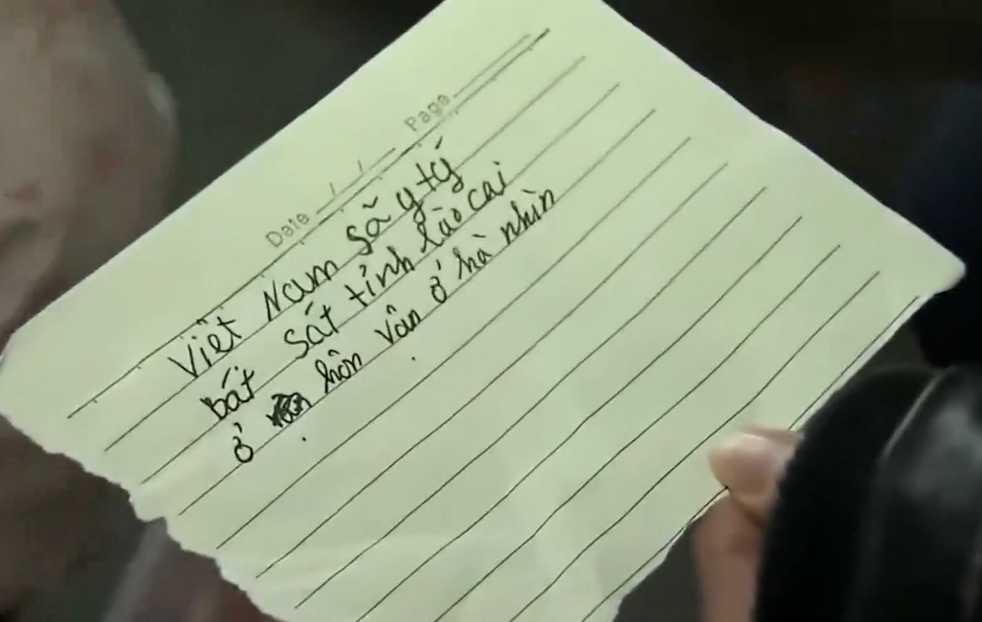 Page
Date / /
Việt Nam sã y tý
bát sát tỉnh lào cai
ở hôn vân ở hà nhìn